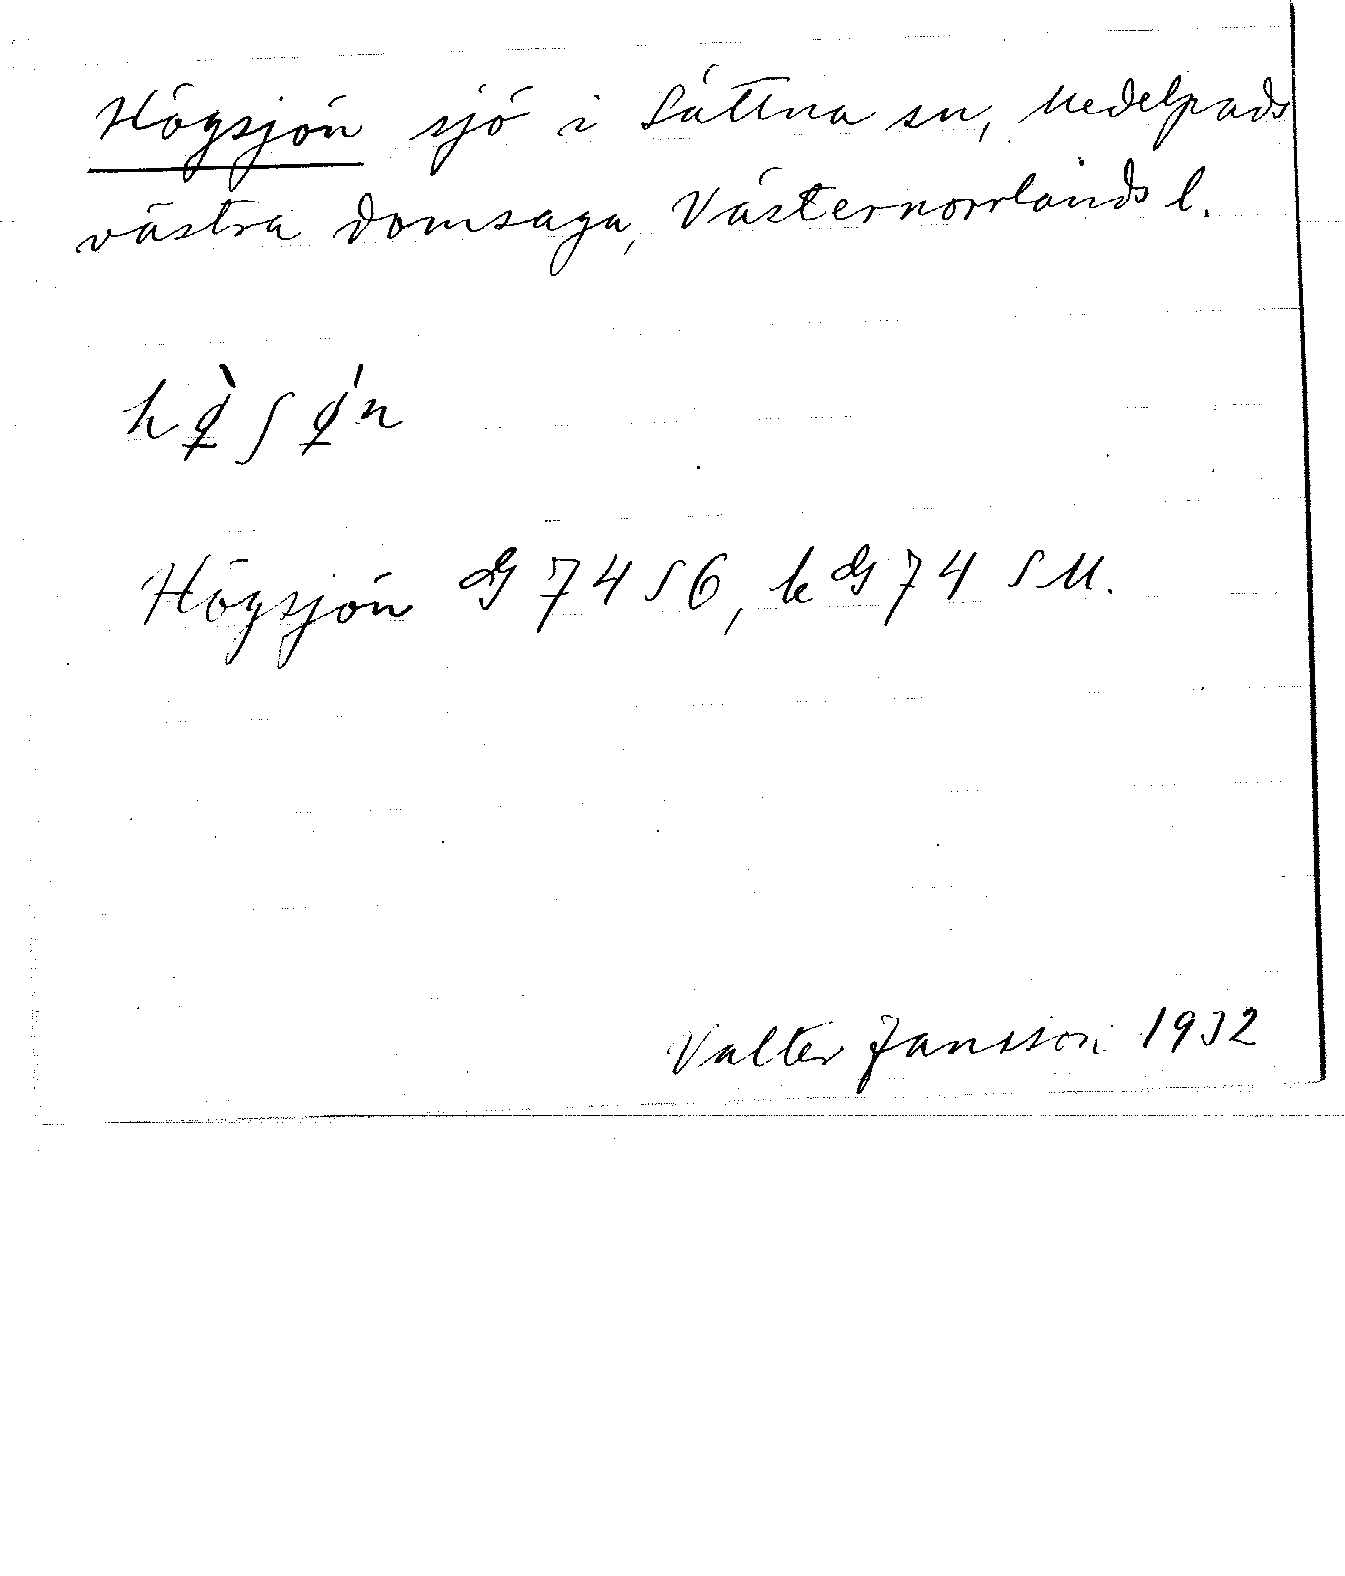 Högsjön sjö i Sättna sn, Medelpads
västra domsaga, Västernorrlands l.
hø̀ʃǿn
Högsjön G 74 S6, k G 74 SM.
Valter Jansson 1932